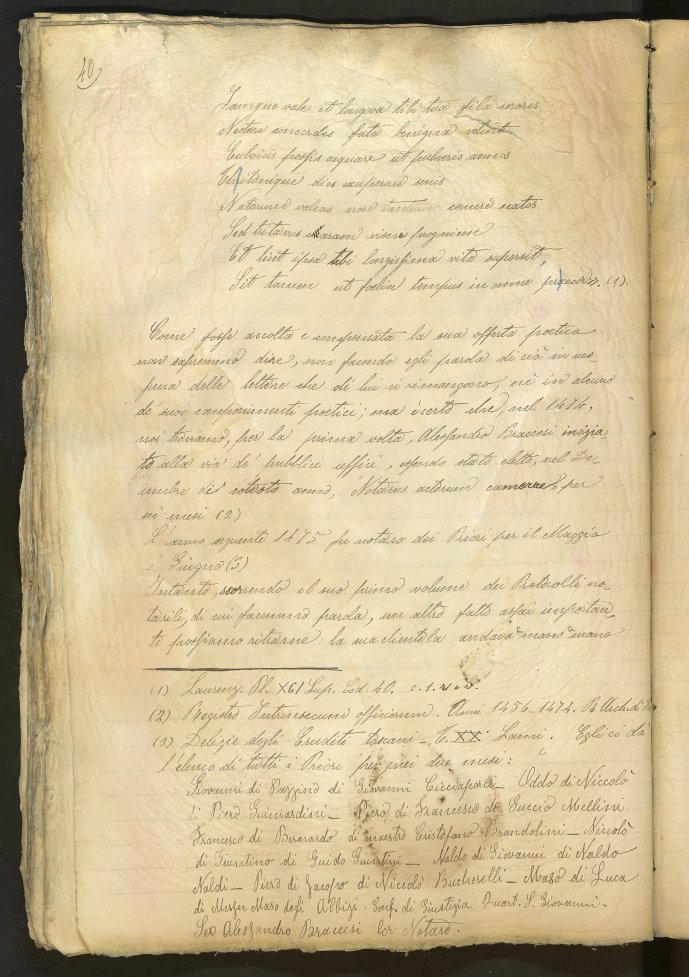 40)
Jamque vale et longeva tibi tua fila sorores
Nectere concordes fata benigna velint
Euboicis possis aequare ut pulveris annos
dies exuperare senis
Natorum valeas non tantum cernere natos
Sed tritavus claram visere progeniem
Et licet ipsa tibi largissima vita supersit
Sit tamen ut foelix tempus in omne precor. (1).
Come fosse accolta e compensata la sua offerta poetica
non sapremmo dire, non facendo egli parola di ciò in nes
suna delle lettere che di lui ci rimangono, nè in alcuno
de' suoi componimenti poetici; ma è certo che, nel 1474,
noi troviamo, per la prima volta, Alessandro Braccesi inizia-
to alla via de' pubblici uffici, essendo stato eletto, nel De-
cembre di cotesto anno, "Notarus actorum camerae", per
sei mesi (2)
L'anno seguente 1475 fu notaro dei Priori per il Maggio
e Giugno (3)
Intanto, scorrendo il suo primo volume dei Protocolli no-
tarili, di cui facemmo parola, un altro fatto assai importan-
te possiamo ritrarne: la sua clientela andava mano mano
(1) Laurenz. Pl. XCI Sup. Cod. 40. c. 1. r. e v.
(2) Registro Intrinsecum officiorum. Anni 1456-1474. R. Arch. di
(3) Delizie degli Eruditi toscani - T. XX Lami. Egli ci dà
l'elenco di tutti i Priori per quei due mesi:
Giovanni di Pazzino di Giovanni Cicciaporci - Oddo di Niccolò
di Piero Guicciardini - Piero di Francesco di Guccio Mellini
Francesco di Bernardo di maestro Cristofano Brandolini - Niccolò
di Giuntino di Guido Giuntini - Naldo di Giovanni di Naldo
Naldi - Piero di Jacopo di Niccolò Bucherelli - Maso di Luca
di Messer Maso degli Albizi - Gonf. di Giustizia Quart. S. Giovanni.
Ser Alessandro Braccesi lor Notaro.